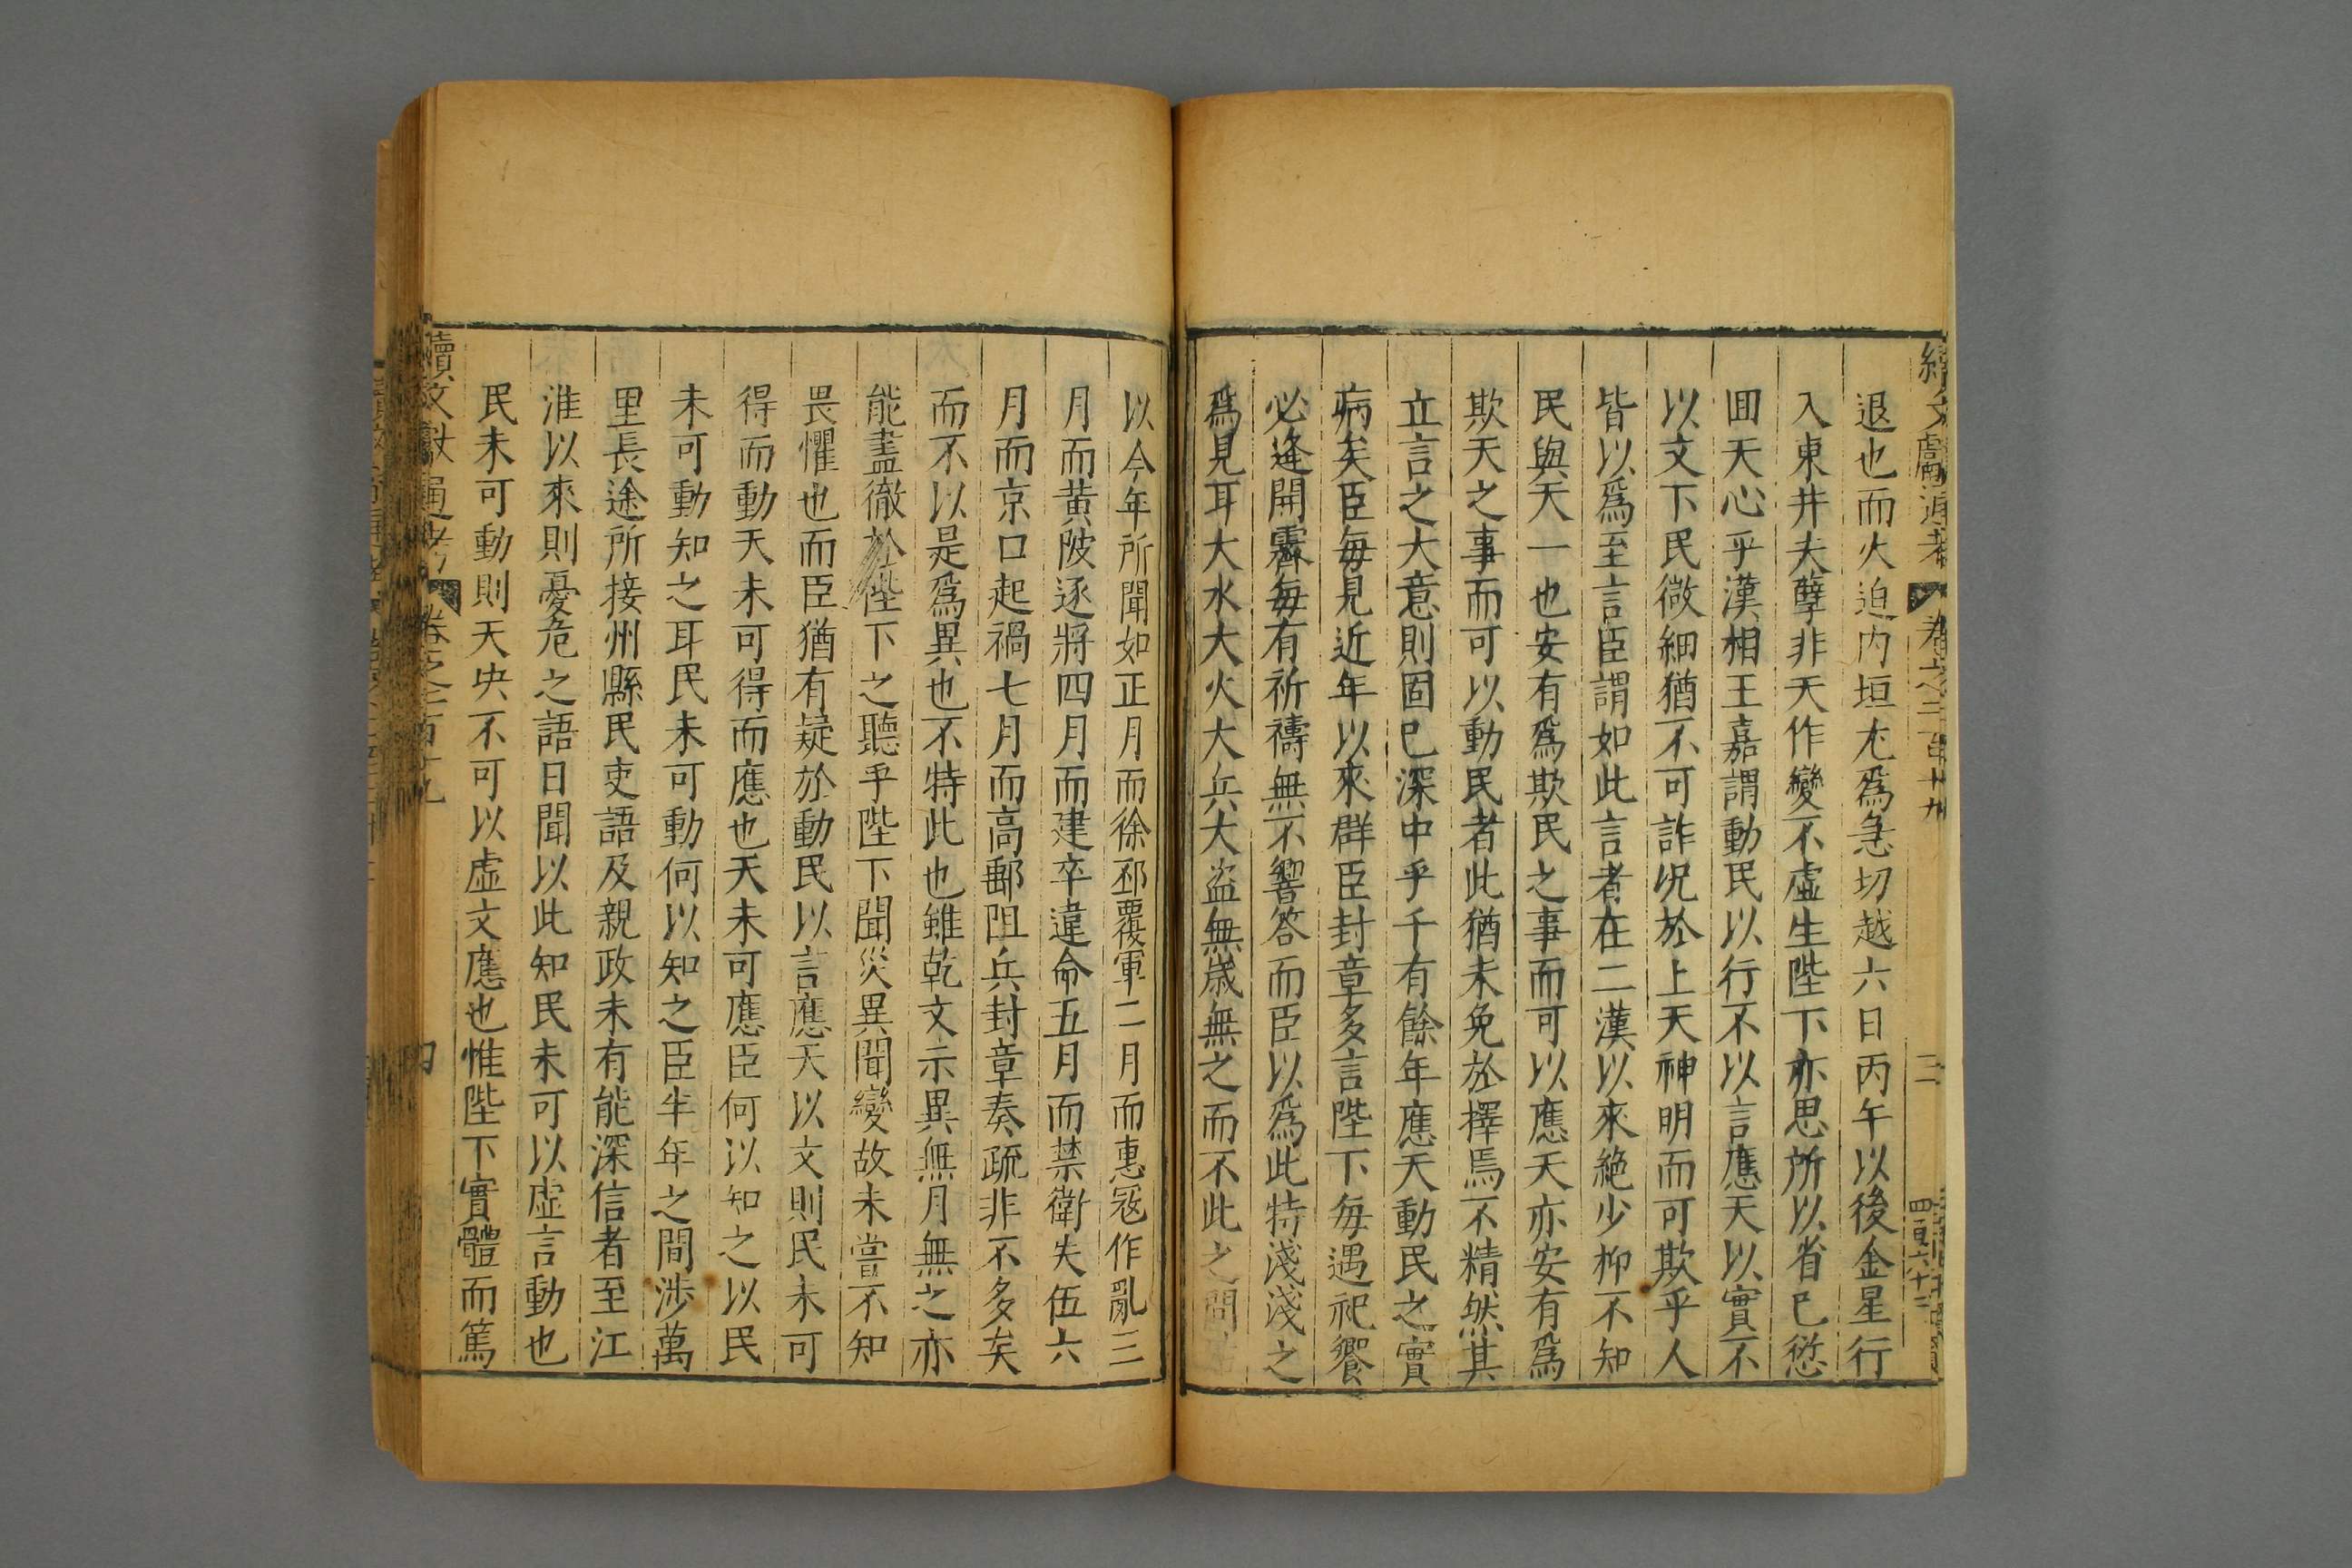 退也而火迫内垣尤爲急切越六日丙午以後金星行
入東井夫孽非天作變不虛生陛下亦思所以省已愆
囬天心乎漢相王嘉謂動民以行不以言應天以實不
以文下民微細猶不可詐况於上天神明而可欺乎人
皆以爲至言臣謂如此言者在二漢以來絶少抑不知
民與天一也安有爲欺民之事而可以應天亦安有爲
欺天之事而可以動民者此猶未免於擇焉不精然其
立言之大意則固已深中乎千有餘年應天動民之實
病矣臣毎見近年以來群臣封章多言陛下毎遇祀饗
必逢開霽毎有祈禱無不響答而臣以爲此特淺淺之
爲見耳大水大火大兵大盗無歳無之而不此之問
以今年所聞如正月而徐邳覆軍二月而惠寇作亂三
月而黄陂逐將四月而建卒違命五月而禁衛失伍六
月而京口起禍七月而高郵阻兵封章奏疏非不多矣
而不以是爲異也不特此也雖乾文示異無月無之亦
能盡徹於陛下之聽乎陛下聞災異聞變故未嘗不知
畏懼也而臣猶有疑於動民以言應天以文則民未可
得而動天未可得而應也天未可應臣何以知之以民
未可動知之耳民未可動何以知之臣半年之間渉萬
里長途所接州縣民吏語及親政未有能深信者至江
淮以來則憂危之語日聞以此知民未可以虛言動也
民未可動則天央不可以虛文應也惟陛下實體而篤
續文獻通考
卷之二百十九
四